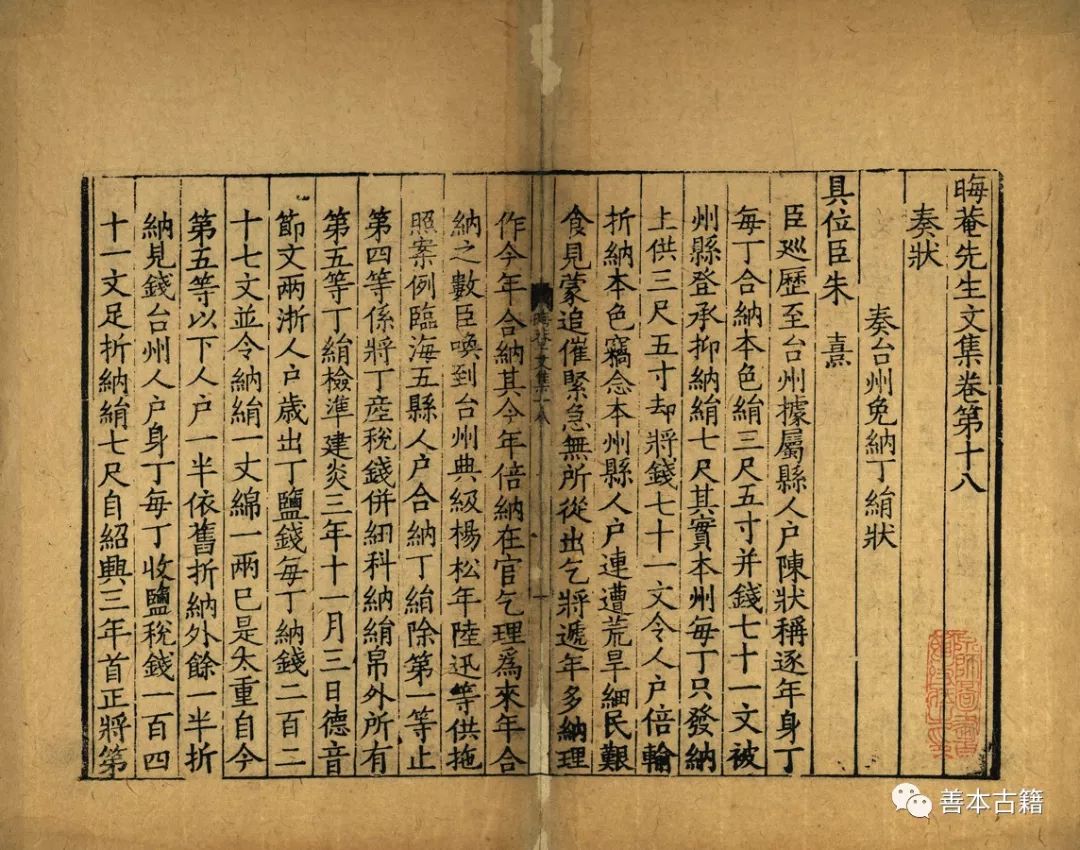 晦菴先生文集卷第十八
奏狀
奏台州免納丁絹狀
具位臣朱熹
臣巡歷至台州據屬縣人户陳狀稱逐年身丁
每丁合納本色絹三尺五寸并錢七十一文被
州縣登承抑納絹七尺其實本州每丁只發納
上供三尺五寸却將錢七十一文令人户倍輸
折納本色竊念本州縣人户連遭荒旱細民艱
食見蒙追催緊急無所從出乞將遞年多納理
晦菴文集十八
一
作今年合納其今年倍納在官乞理爲來年合
納之數臣喚到台州典級楊松年陸迅等供拖
照案例臨海五縣人户合納丁絹除第一等止
第四等係將丁産税錢併細科納絹帛外所有
第五等丁絹檢準建炎三年十一月三日德音
節文兩浙人户歲出丁鹽錢每丁納錢二百二
十七文並令納絹一丈綿一兩已是太重自今
第五等以下人户一半依舊折納外餘一半折
納見錢台州人户身丁每丁收鹽税錢一百四
十一文足折納絹七尺自紹興三年首正將第
善本古籍